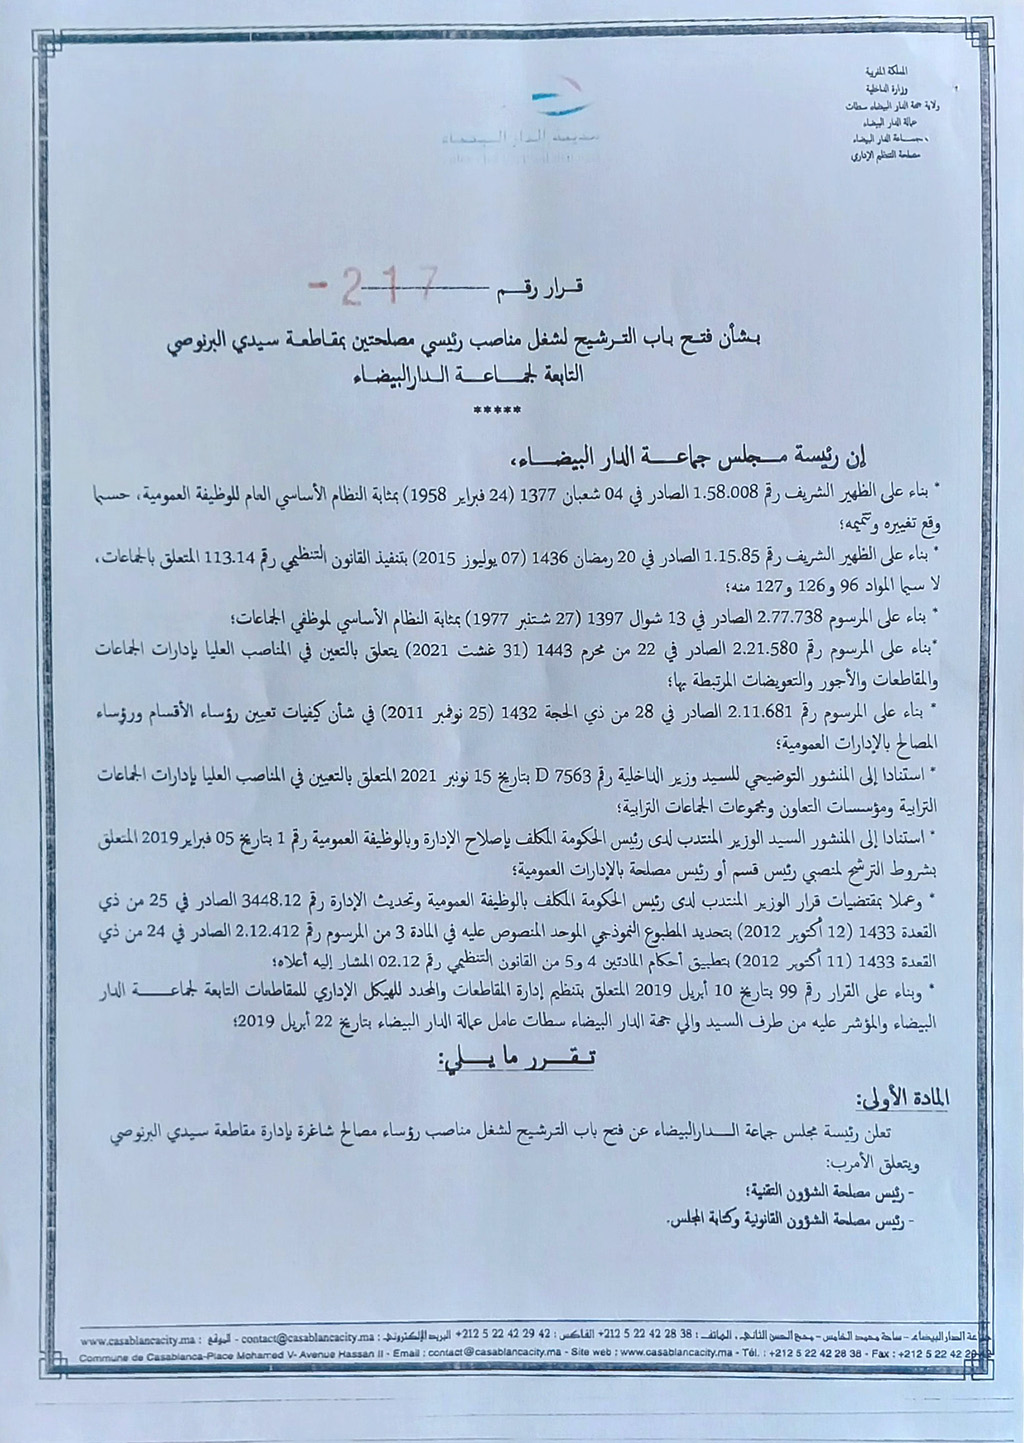 المملكة المغربية
وزارة الداخلية
ولاية جهة الدار البيضاء سطات
عمالة الدار البيضاء
جماعة الدار البيضاء
مصلحة التنظيم الإداري
مدينة الدار البيضاء
قرار رقم 217 -
بشأن فتح باب الترشيح لشغل مناصب رئيسي مصلحتين بمقاطعة سيدي البرنوصي
التابعة لجماعة الدارالبيضاء
*****
إن رئيسة مجلس جماعة الدار البيضاء،
* بناء على الظهير الشريف رقم 1.58.008 الصادر في 04 شعبان 1377 (24 فبراير 1958) بمثابة النظام الأساسي العام للوظيفة العمومية، حسبما
وقع تغييره وتتميمه؛
* بناء على الظهير الشريف رقم 1.15.85 الصادر في 20 رمضان 1436 (07 يوليوز 2015) بتنفيذ القانون التنظيمي رقم 113.14 المتعلق بالجماعات،
لا سيما المواد 96 و126 و127 منه؛
* بناء على المرسوم 2.77.738 الصادر في 13 شوال 1397 (27 شتنبر 1977) بمثابة النظام الأساسي لموظفي الجماعات؛
*بناء على المرسوم رقم 2.21.580 الصادر في 22 من محرم 1443 (31 غشت 2021) يتعلق بالتعين في المناصب العليا بإدارات الجماعات
والمقاطعات والأجور والتعويضات المرتبطة بها؛
* بناء على المرسوم رقم 2.11.681 الصادر في 28 من ذي الحجة 1432 (25 نوفمبر 2011) في شأن كيفيات تعيين رؤساء الأقسام ورؤساء
المصالح بالإدارات العمومية؛
* استنادا إلى المنشور التوضيحي للسيد وزير الداخلية رقم D 7563 بتاريخ 15 نونبر 2021 المتعلق بالتعيين في المناصب العليا بإدارات الجماعات
الترابية ومؤسسات التعاون ومجموعات الجماعات الترابية؛
* استنادا إلى المنشور السيد الوزير المنتدب لدى رئيس الحكومة المكلف بإصلاح الإدارة وبالوظيفة العمومية رقم 1 بتاريخ 05 فبراير 2019 المتعلق
بشروط الترشح لمنصبي رئيس قسم أو رئيس مصلحة بالإدارات العمومية؛
* وعملا بمقتضيات قرار الوزير المنتدب لدى رئيس الحكومة المكلف بالوظيفة العمومية وتحديث الإدارة رقم 3448.12 الصادر في 25 من ذي
القعدة 1433 (12 أكتوبر 2012) بتحديد المطبوع النموذجي الموحد المنصوص عليه في المادة 3 من المرسوم رقم 2.12.412 الصادر في 24 من ذي
القعدة 1433 (11 أكتوبر 2012) بتطبيق أحكام المادتين 4 و5 من القانون التنظيمي رقم 02.12 المشار إليه أعلاه؛
* وبناء على القرار رقم 99 بتاريخ 10 أبريل 2019 المتعلق بتنظيم إدارة المقاطعات والمحدد للهيكل الإداري للمقاطعات التابعة لجماعة الدار
البيضاء والمؤشر عليه من طرف السيد والي جهة الدار البيضاء سطات عامل عمالة الدار البيضاء بتاريخ 22 أبريل 2019؛
تقرر ما يلي:
المادة الأولى:
تعلن رئيسة مجلس جماعة الدارالبيضاء عن فتح باب الترشيح لشغل مناصب رؤساء مصالح شاغرة بإدارة مقاطعة سيدي البرنوصي
ويتعلق الأمرب:
- رئيس مصلحة الشؤون التقنية؛
- رئيس مصلحة الشؤون القانونية وكتابة المجلس.
جماعة الدار البيضاء - ساحة محمد الخامس - محج الحسن الثاني، الهاتف : 38 28 42 22 5 212+ الفاكس : 42 29 42 22 5 212+ البريد الإلكتروني : contact@casablancacity.ma - الموقع : www.casablancacity.ma
Commune de Casablanca-Place Mohamed V- Avenue Hassan II - Email : contact@casablancacity.ma - Site web : www.casablancacity.ma - Tél. : +212 5 22 42 28 38 - Fax : +212 5 22 42 29 42